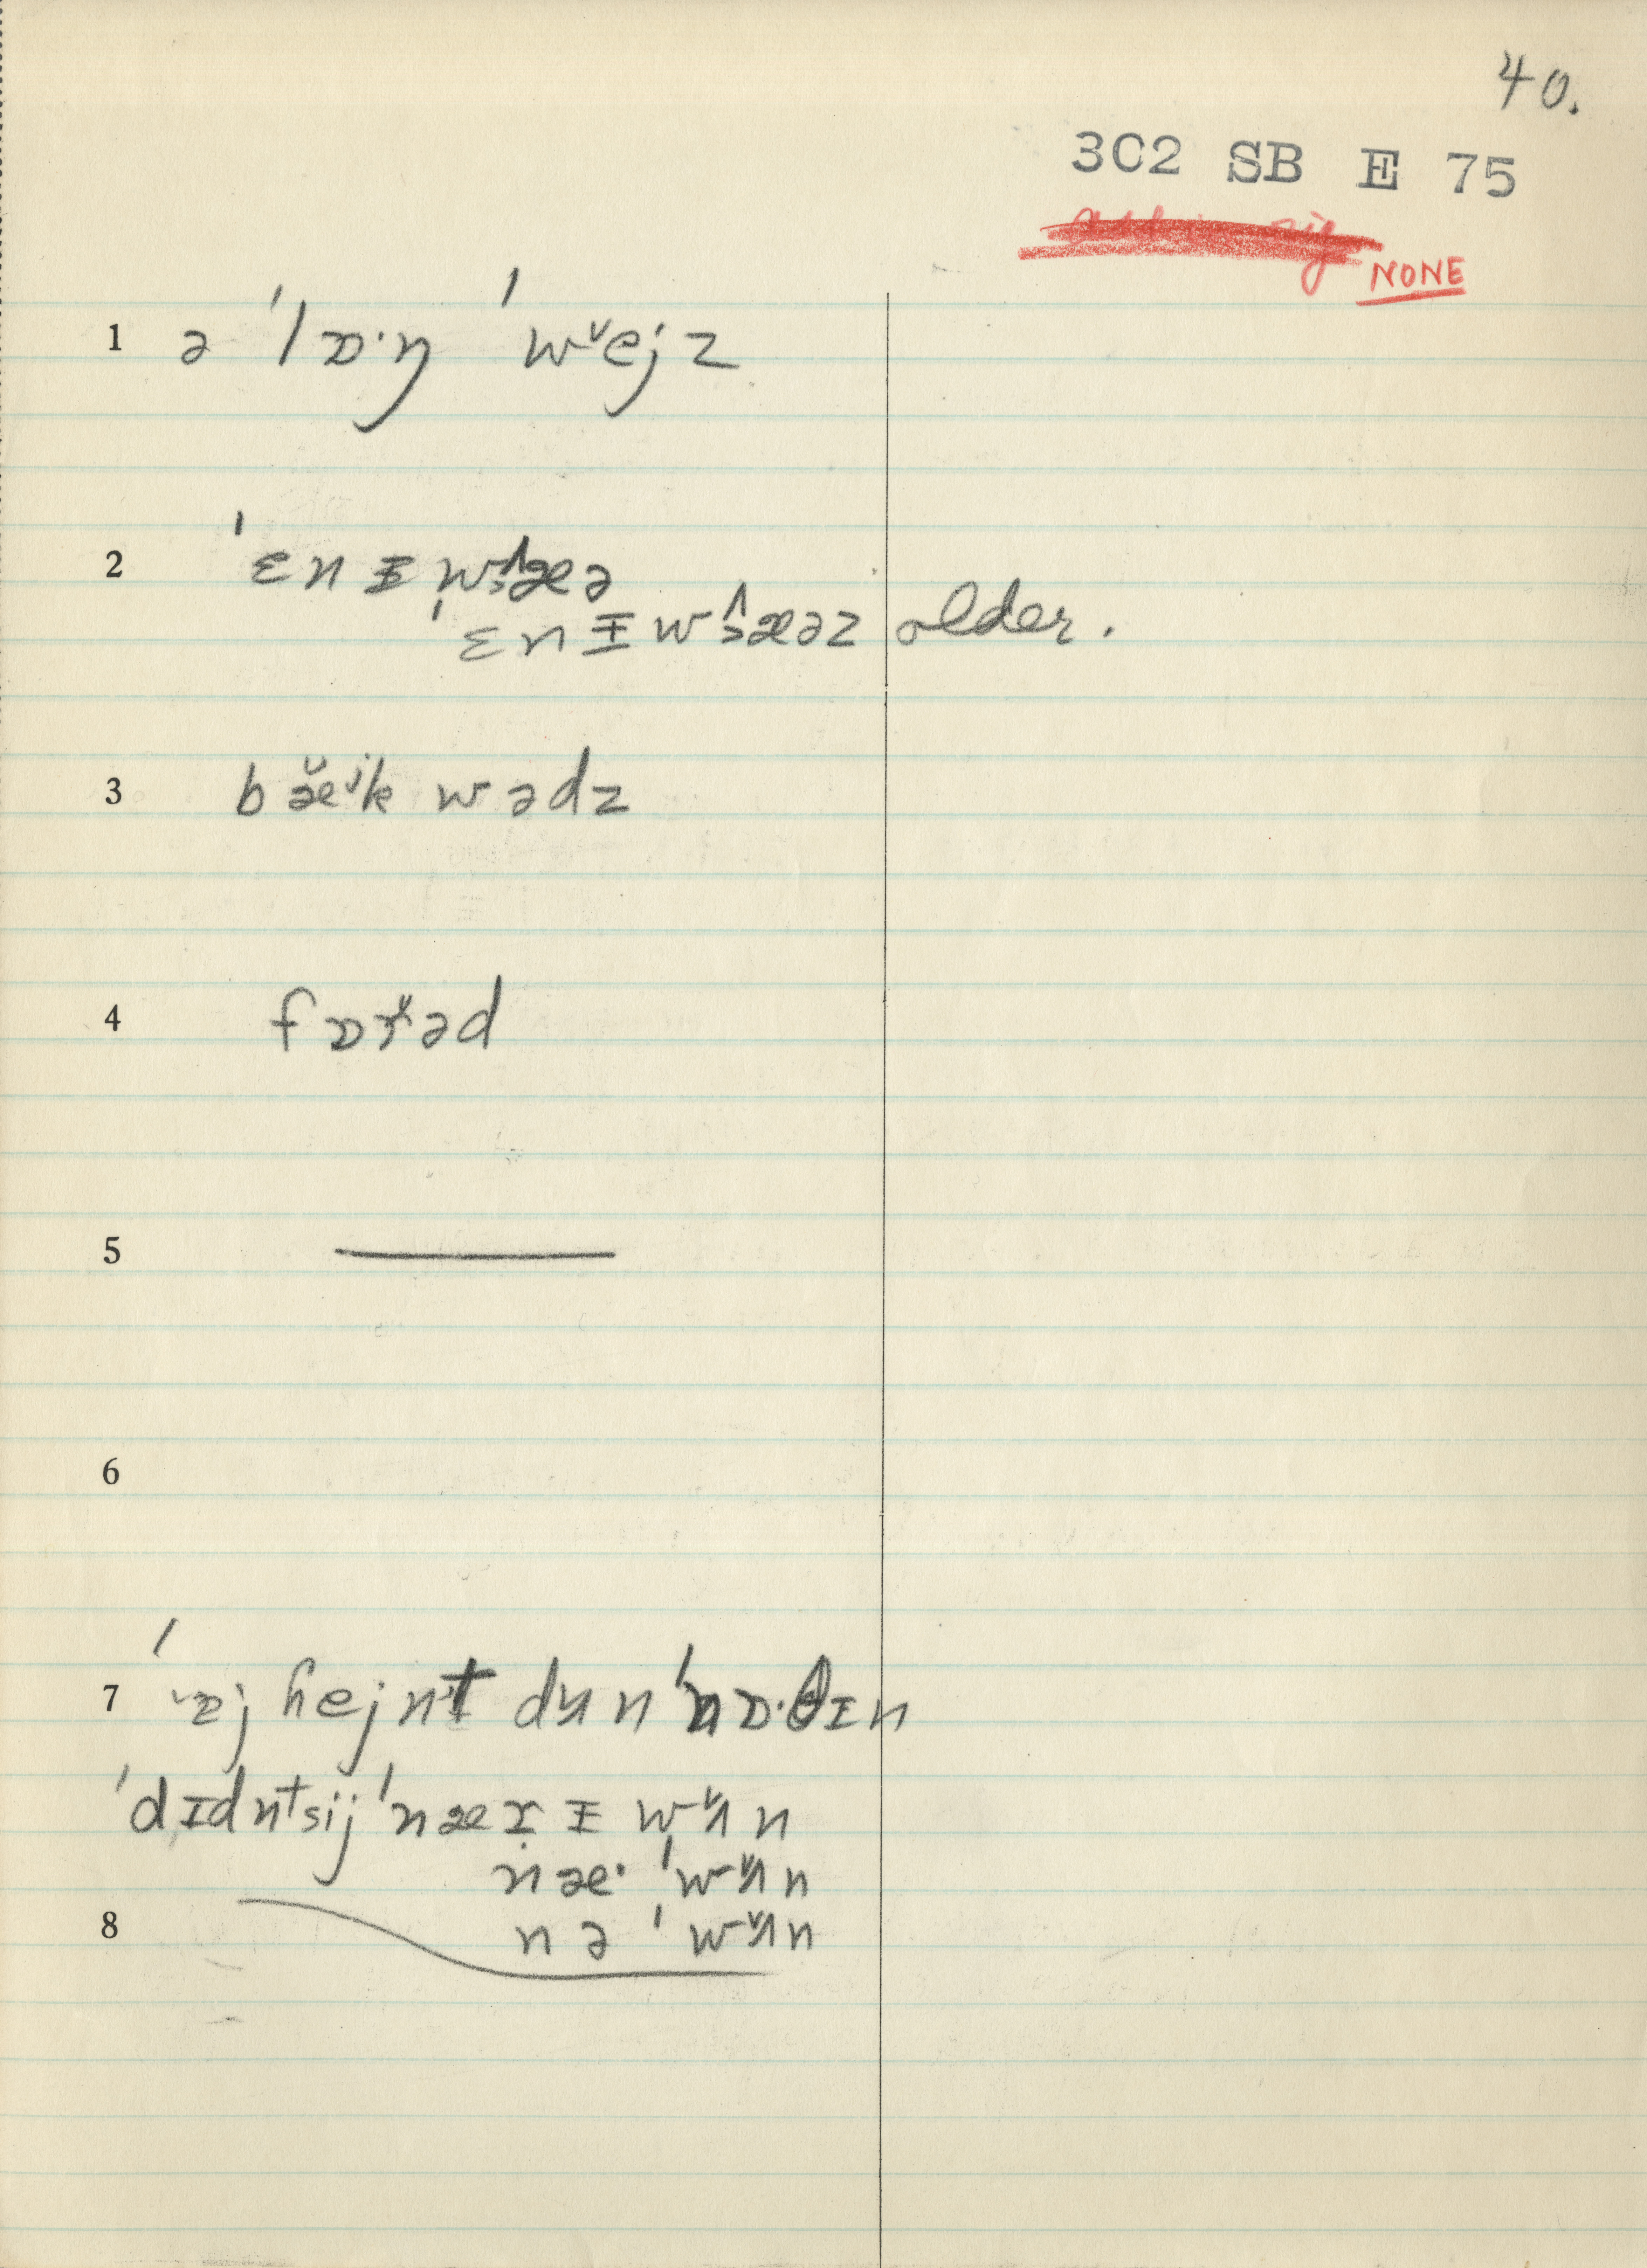 40.
3C2 SB E 75
NONE
1 ə ˈlɒ·ŋ ˈwᵛejz
2 ˈɛnɪwæə
ˈɛnɪwæəz older.
3 bæ̌ʲk wədz
4 fɒɤəd
5
6
7 hejnt dʌn ˈnɒ·θɪn
ˈdɪdntsij ˈnæɤɪ wʌn
næ· ˈwʌn
8 nə ˈwʌn